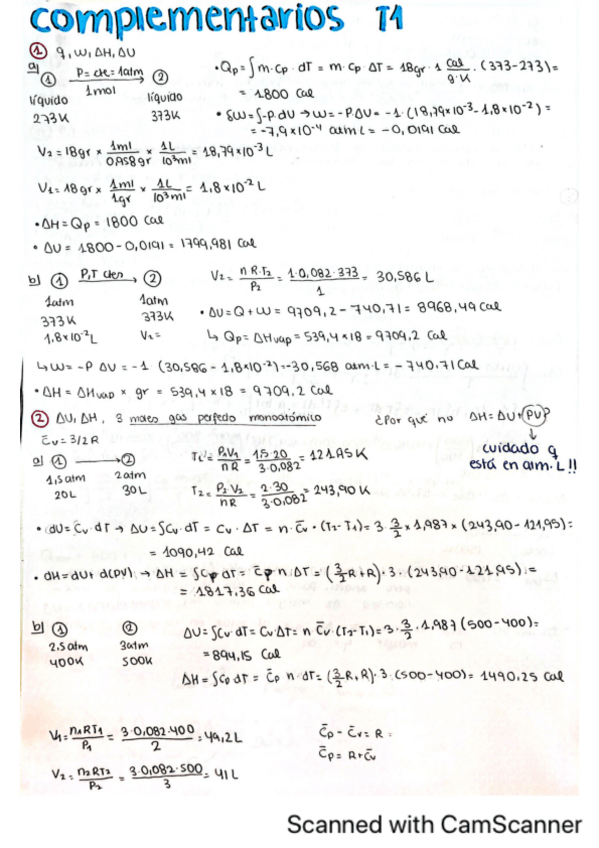 complementarios T1
① q, w, ΔH, ΔU
a) ① P=cte=1atm → ② 
1mol
líquido líquido
273K 373K
• Qp = ∫ m·cp·dT = m·cp·ΔT = 18gr·1 cal/g·K ·(373-273)=
= 1800 cal
• δw=∫-P·dV → w=-P·ΔV = -1·(18,79x10⁻³-1,8x10⁻²)=
= -7,9x10⁻⁴ atm L = -0,0191 cal
V₂ = 18gr x 1ml/0,958gr x 1L/10³ml = 18,79x10⁻³ L
V₁ = 18gr x 1ml/1gr x 1L/10³ml = 1,8x10⁻² L
• ΔH = Qp = 1800 cal
• ΔU = 1800 - 0,0191 = 1799,981 cal
b) ① P,T ctes → ②
1atm 1atm
373K 373K
1,8x10⁻²L V₂=
V₂ = nR·T₂/P₂ = 1·0,082·373/1 = 30,586 L
• ΔU = Q + W = 9709,2 - 740,71 = 8968,49 cal
↳ Qp = ΔHvap = 539,4 x 18 = 9709,2 cal
↳ W = -P ΔV = -1 (30,586 - 1,8x10⁻²) = -30,568 atm·L = -740,71 cal
• ΔH = ΔHvap x gr = 539,4 x 18 = 9709,2 cal
② ΔU, ΔH, 3 moles gas perfecto monoatómico
C̄v = 3/2 R
¿Por qué no ΔH = ΔU + (PV)?
cuidado q
está en atm. L !!
a) ① → ②
1,5atm 2atm
20L 30L
T₁ = P₁V₁/nR = 1,5·20/3·0,082 = 121,95 K
T₂ = P₂V₂/nR = 2·30/3·0,082 = 243,90 K
• dU = Cv·dT → ΔU = ∫Cv·dT = Cv·ΔT = n·C̄v·(T₂-T₁) = 3·3/2 x 1,987 x (243,90-121,95)=
= 1090,42 cal
• dH = dU + d(PV) → ΔH = ∫Cp dT = C̄p n·ΔT = (3/2 R+R)·3·(243,90-121,95)=
= 1817,36 cal
b) ① ②
2,5atm 3atm
400K 500K
ΔU = ∫Cv·dT = Cv·ΔT = n C̄v·(T₂-T₁) = 3·3/2·1,987 (500-400)=
= 894,15 cal
ΔH = ∫Cp·dT = C̄p n·dT = (3/2 R+R)·3·(500-400) = 1490,25 cal
V₁ = n₁RT₁/P₁ = 3·0,082·400/2 = 49,2L
V₂ = n₂RT₂/P₂ = 3·0,082·500/3 = 41L
C̄p - C̄v = R =
C̄p = R + C̄v
Scanned with CamScanner